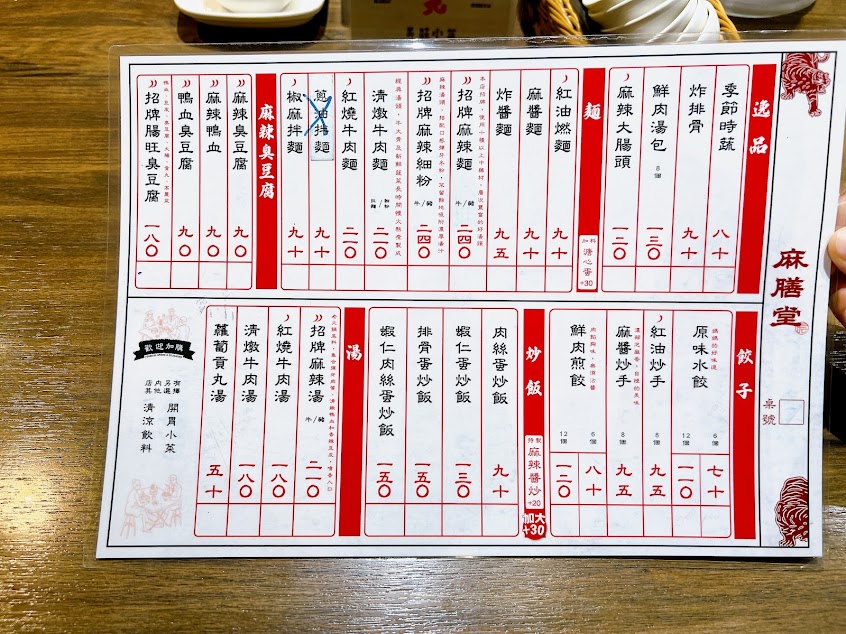 麻膳堂
桌號
逸品
季節時蔬 八十
炸排骨 九十
鮮肉湯包 8個 一三〇
麻辣大腸頭 一二〇
麵
加料 溏心蛋 +30
紅油燃麵 九十
麻醬麵 九十
炸醬麵 九五
本店招牌，使用十種以上中藥材，層次豐富的好湯頭
招牌麻辣麵 牛/豬 二四〇
招牌麻辣細粉 牛/豬 二四〇
清燉牛肉麵 二一〇
紅燒牛肉麵 二一〇
蔥油拌麵 九十
椒麻拌麵 九十
麻辣臭豆腐
麻辣臭豆腐 九〇
麻辣鴨血 九〇
鴨血臭豆腐 九〇
招牌腸旺臭豆腐 一八〇
餃子
原味水餃 6個 七十 12個 一一〇
紅油炒手 8個 九五
麻醬炒手 8個 九五
鮮肉煎餃 6個 八十 12個 一二〇
炒飯
特製 麻辣醬炒 +20
加大 +30
肉絲蛋炒飯 九十
蝦仁蛋炒飯 一三〇
排骨蛋炒飯 一五〇
蝦仁肉絲蛋炒飯 一五〇
湯
招牌麻辣湯 牛/豬 二一〇
紅燒牛肉湯 一八〇
清燉牛肉湯 一八〇
蘿蔔貢丸湯 五十
歡迎加購
開胃小菜
清涼飲料